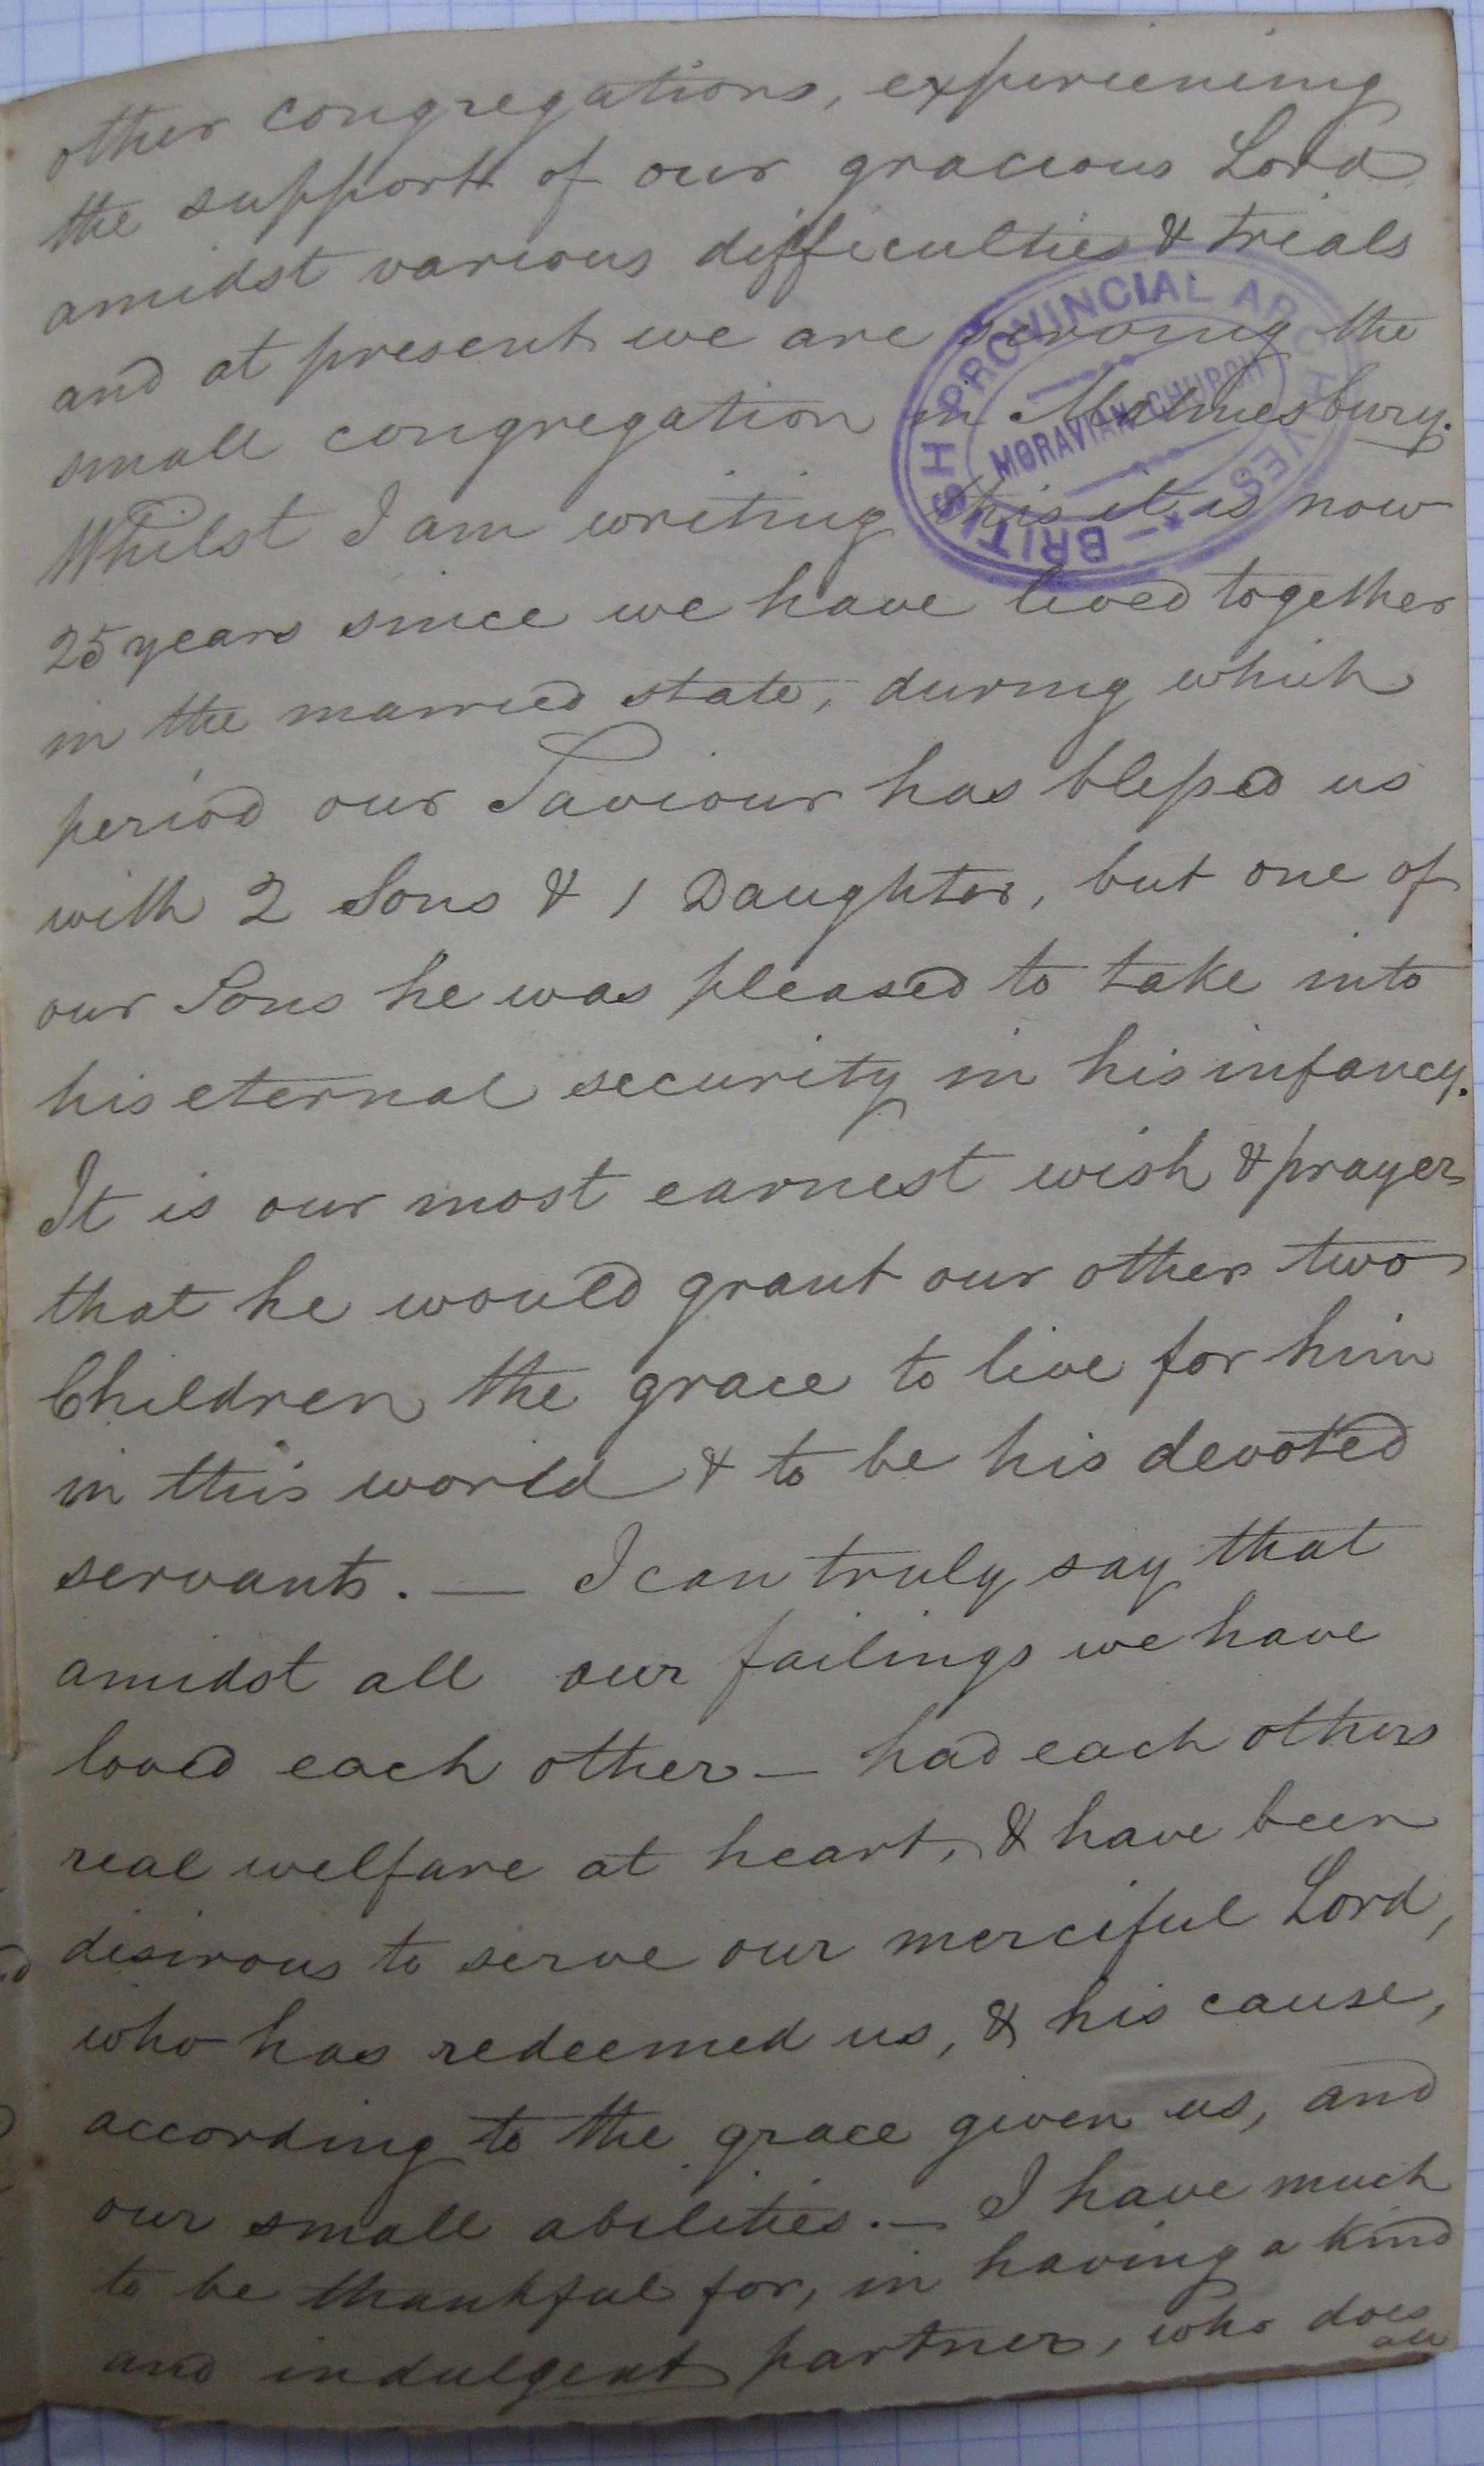 other congregations, experiening
the support of our gracious Lord
amidst various difficulties & trials
and at present we are serving the
small congregation in Malmesbury.
Whilst I am writing this it is now
25 years since we have lived together
in the married state, during which
period our Saviour has blessed us
with 2 Sons & 1 Daughter, but one of
our Sons he was pleased to take into
his eternal security in his infancy.
It is our most earnest wish & prayer
that he would grant our other two
Children the grace to live for him
in this world & to be his devoted
servants. — I can truly say that
amidst all our failings we have
loved each other — had each others
real welfare at heart, & have been
desirous to serve our merciful Lord,
who has redeemed us, & his cause,
according to the grace given us, and
our small abilities. — I have much
to be thankful for, in having a kind
and indulgent partner, who does
all
BRITISH PROVINCIAL ARCHIVES
MORAVIAN CHURCH